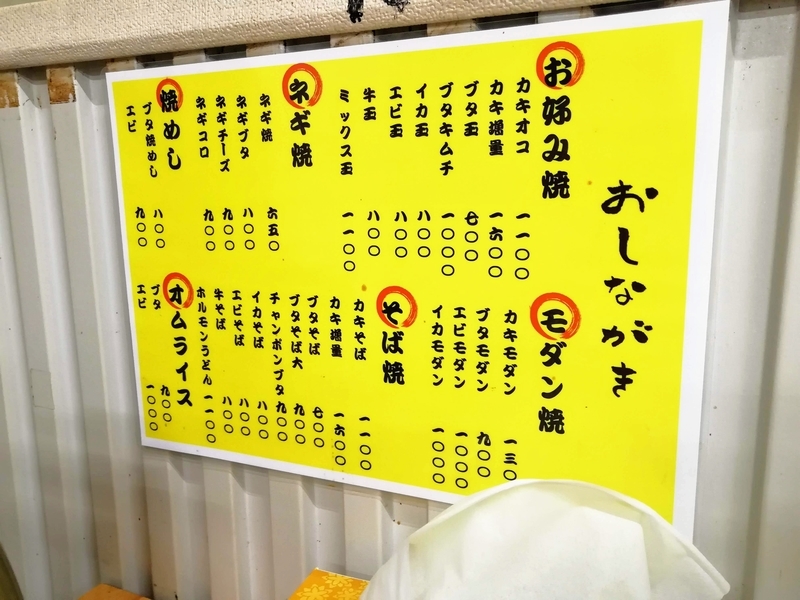 おしながき
お好み焼
カキオコ 一一〇〇
カキ増量 一六〇〇
ブタ玉 七〇〇
ブタキムチ 一〇〇〇
イカ玉 八〇〇
エビ玉 八〇〇
牛玉 八〇〇
ミックス玉 一一〇〇
ネギ焼
ネギ焼 六五〇
ネギブタ 八〇〇
ネギチーズ 九〇〇
ネギコロ 九〇〇
焼めし
ブタ焼めし 八〇〇
エビ 九〇〇
モダン焼
カキモダン 一三〇
ブタモダン 九〇〇
エビモダン 一〇〇〇
イカモダン 一〇〇〇
そば焼
カキそば 一一〇〇
カキ増量 一六〇〇
ブタそば 七〇〇
ブタそば大 九〇〇
チャンポンブタ 九〇〇
イカそば 八〇〇
エビそば 八〇〇
牛そば 八〇〇
ホルモンうどん 一一〇〇
オムライス
ブタ 九〇〇
エビ 一〇〇〇